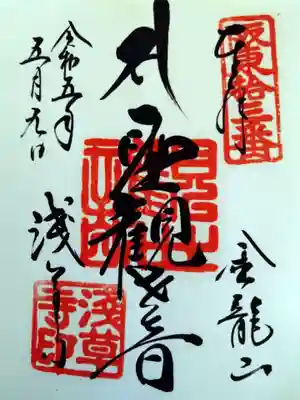 坂東拾三番
奉拝
聖観世音
金龍山
浅草寺
浅草寺印
令和五年
五月五日